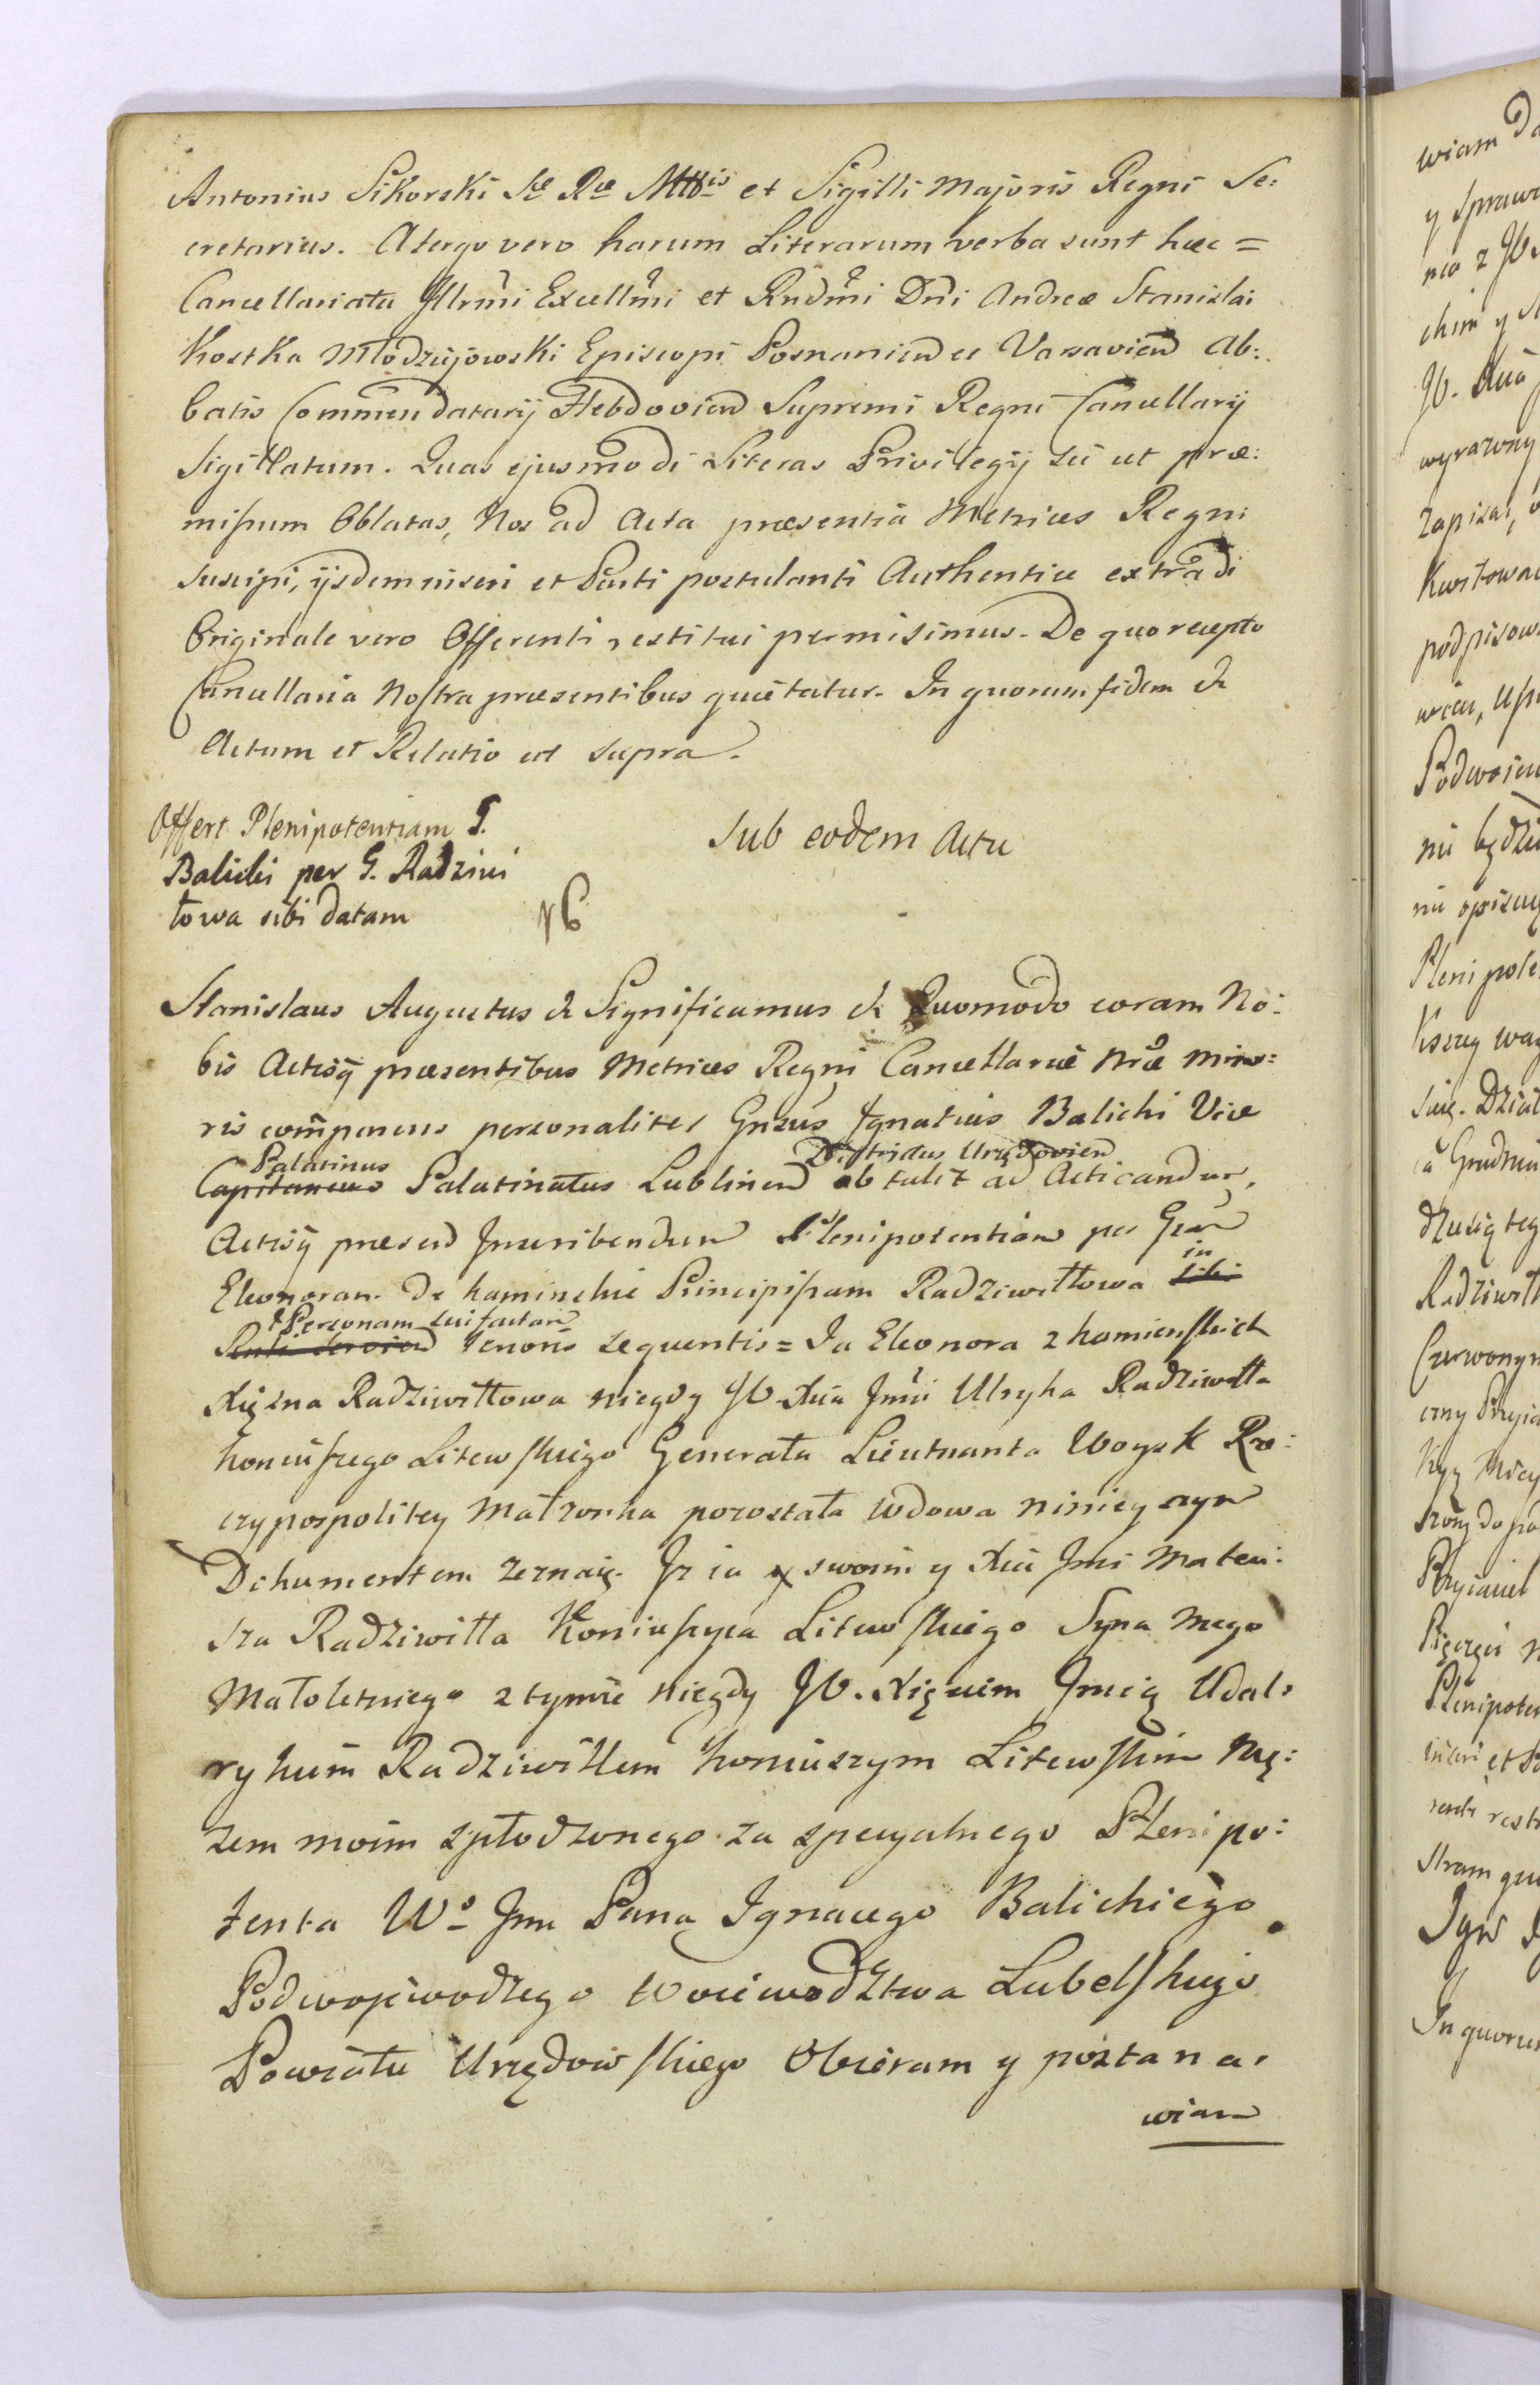 Antonius Sikorski Sæ Ræ Mttis et Sigilli Majoris Regni Se:
cretarius. A tergo vero harum Literarum verba sunt hæc =
Cancellariatu Jllrmi Excellmi et Rndmi Dni Andreæ Stanislai
Kostka Młodziejowski Episcopi Posnanien et Varsavien Ab:
batis Commendatarij Hebdovien Supremi Regni Cancellarij
Sigillatum. Quas ejusmodi Literas Privilegij sic ut præ:
missum Oblatas, Nos ad Acta præsentia Metrices Regni
suscipi, ijsdem inseri et Parti postulanti Authentice extradi
Originale vero Offerenti restitui permisimus. De quo recepto
Cancellaria Nostra præsentibus quietatur. In quorum fidem &
Actum et Relatio ut supra.
Offert Plenipotentiam G.
Balicki per G. Radziwi
łowa sibi datam
Sub eodem Actu
Stanislaus Augustus & Significamus & Quomodo coram No:
bis Actisq præsentibus Metrices Regni Cancellariæ Nræ Mino:
ris comparens personaliter Gnsus Ignatius Balicki Vice
Palatinus Districtus Urzędovien
Capitaneus Palatinatus Lublinen obtulit ad Acticandum,
Actisq præsen Inscribendum Plenipotentiam per Gsam
in
Eleonoram de Kaminskie Principissam Radziwiłłowa sibi
Personam sui factam
tenoris sequentis = Ja Eleonora z Kamienskich
Xiężna Radziwiłłowa niegdy JW Xcia Jmci Ulryka Radziwiłła
Koniuszego Litewskiego Generała Lieutnanta Woysk Rze:
czypospolitey Małżonka pozostała Wdowa ninieyszym
Dokumentem zeznaię. Jż ia swoim y Xcia Jmci Mateu:
sza Radziwiłła Koniuszyca Litewskiego Syna Mego
Małoletniego z tymże niegdy JW. Xięciem Jmcią Udal:
rykiem Radziwiłłem Koniuszym Litewskim Mę:
żem moim spłodzonego za specyalnego Plenipo:
tenta Wo Jmci Pana Ignacego Balickiego
Podwojewodzego Woiewodztwa Lubelskiego
Powiatu Urzędowskiego Obieram y postana:
wiam